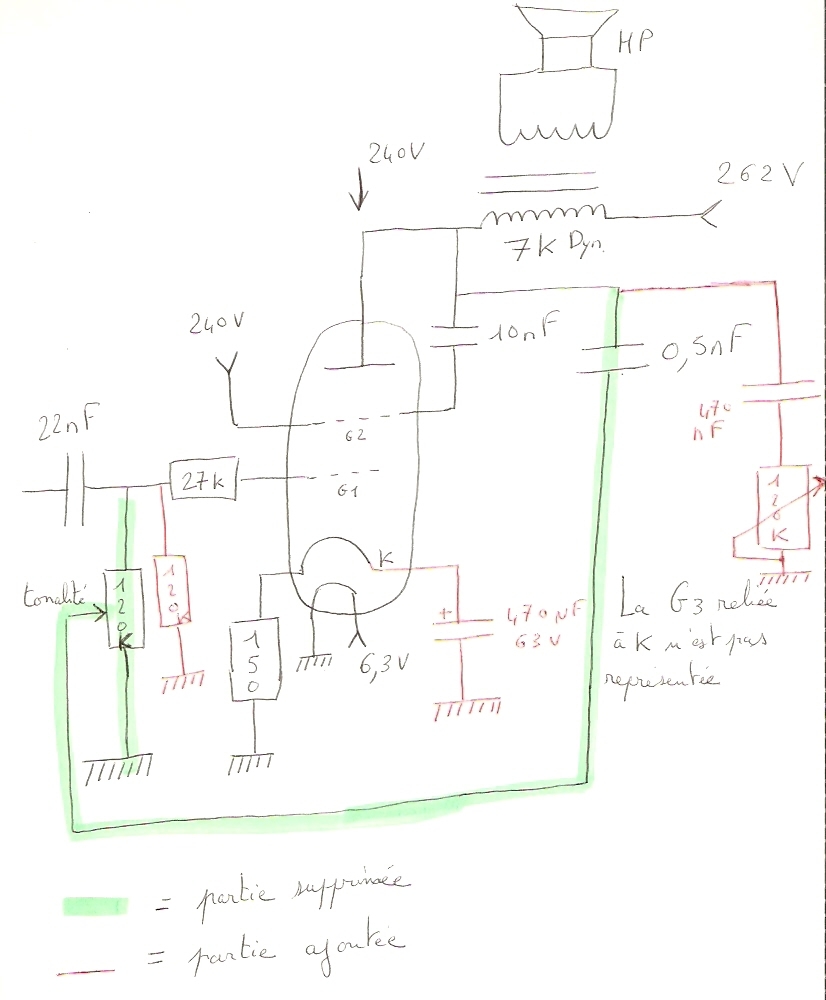 HP
240V
262V
7k Dyn.
240V
10nF
0,5nF
22nF
G2
470
nF
27k
G1
120K
K
tonalité
120K
120K
+
470µF
63V
150
6,3V
La G3 reliée
à K n'est pas
représentée
= partie supprimée
= partie ajoutée